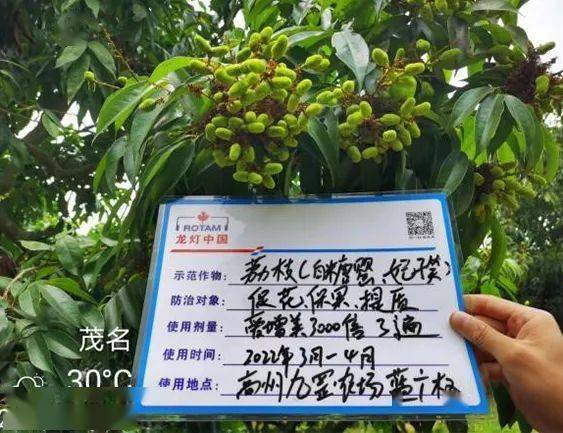 ROTAM
龙灯中国
示范作物: 荔枝(白糖罂、妃子笑)
防治对象: 促花、保果、提质
使用剂量: 3000倍 3遍
使用时间: 2022年3月-4月
使用地点: 高州九罡农场
茂名
30°C